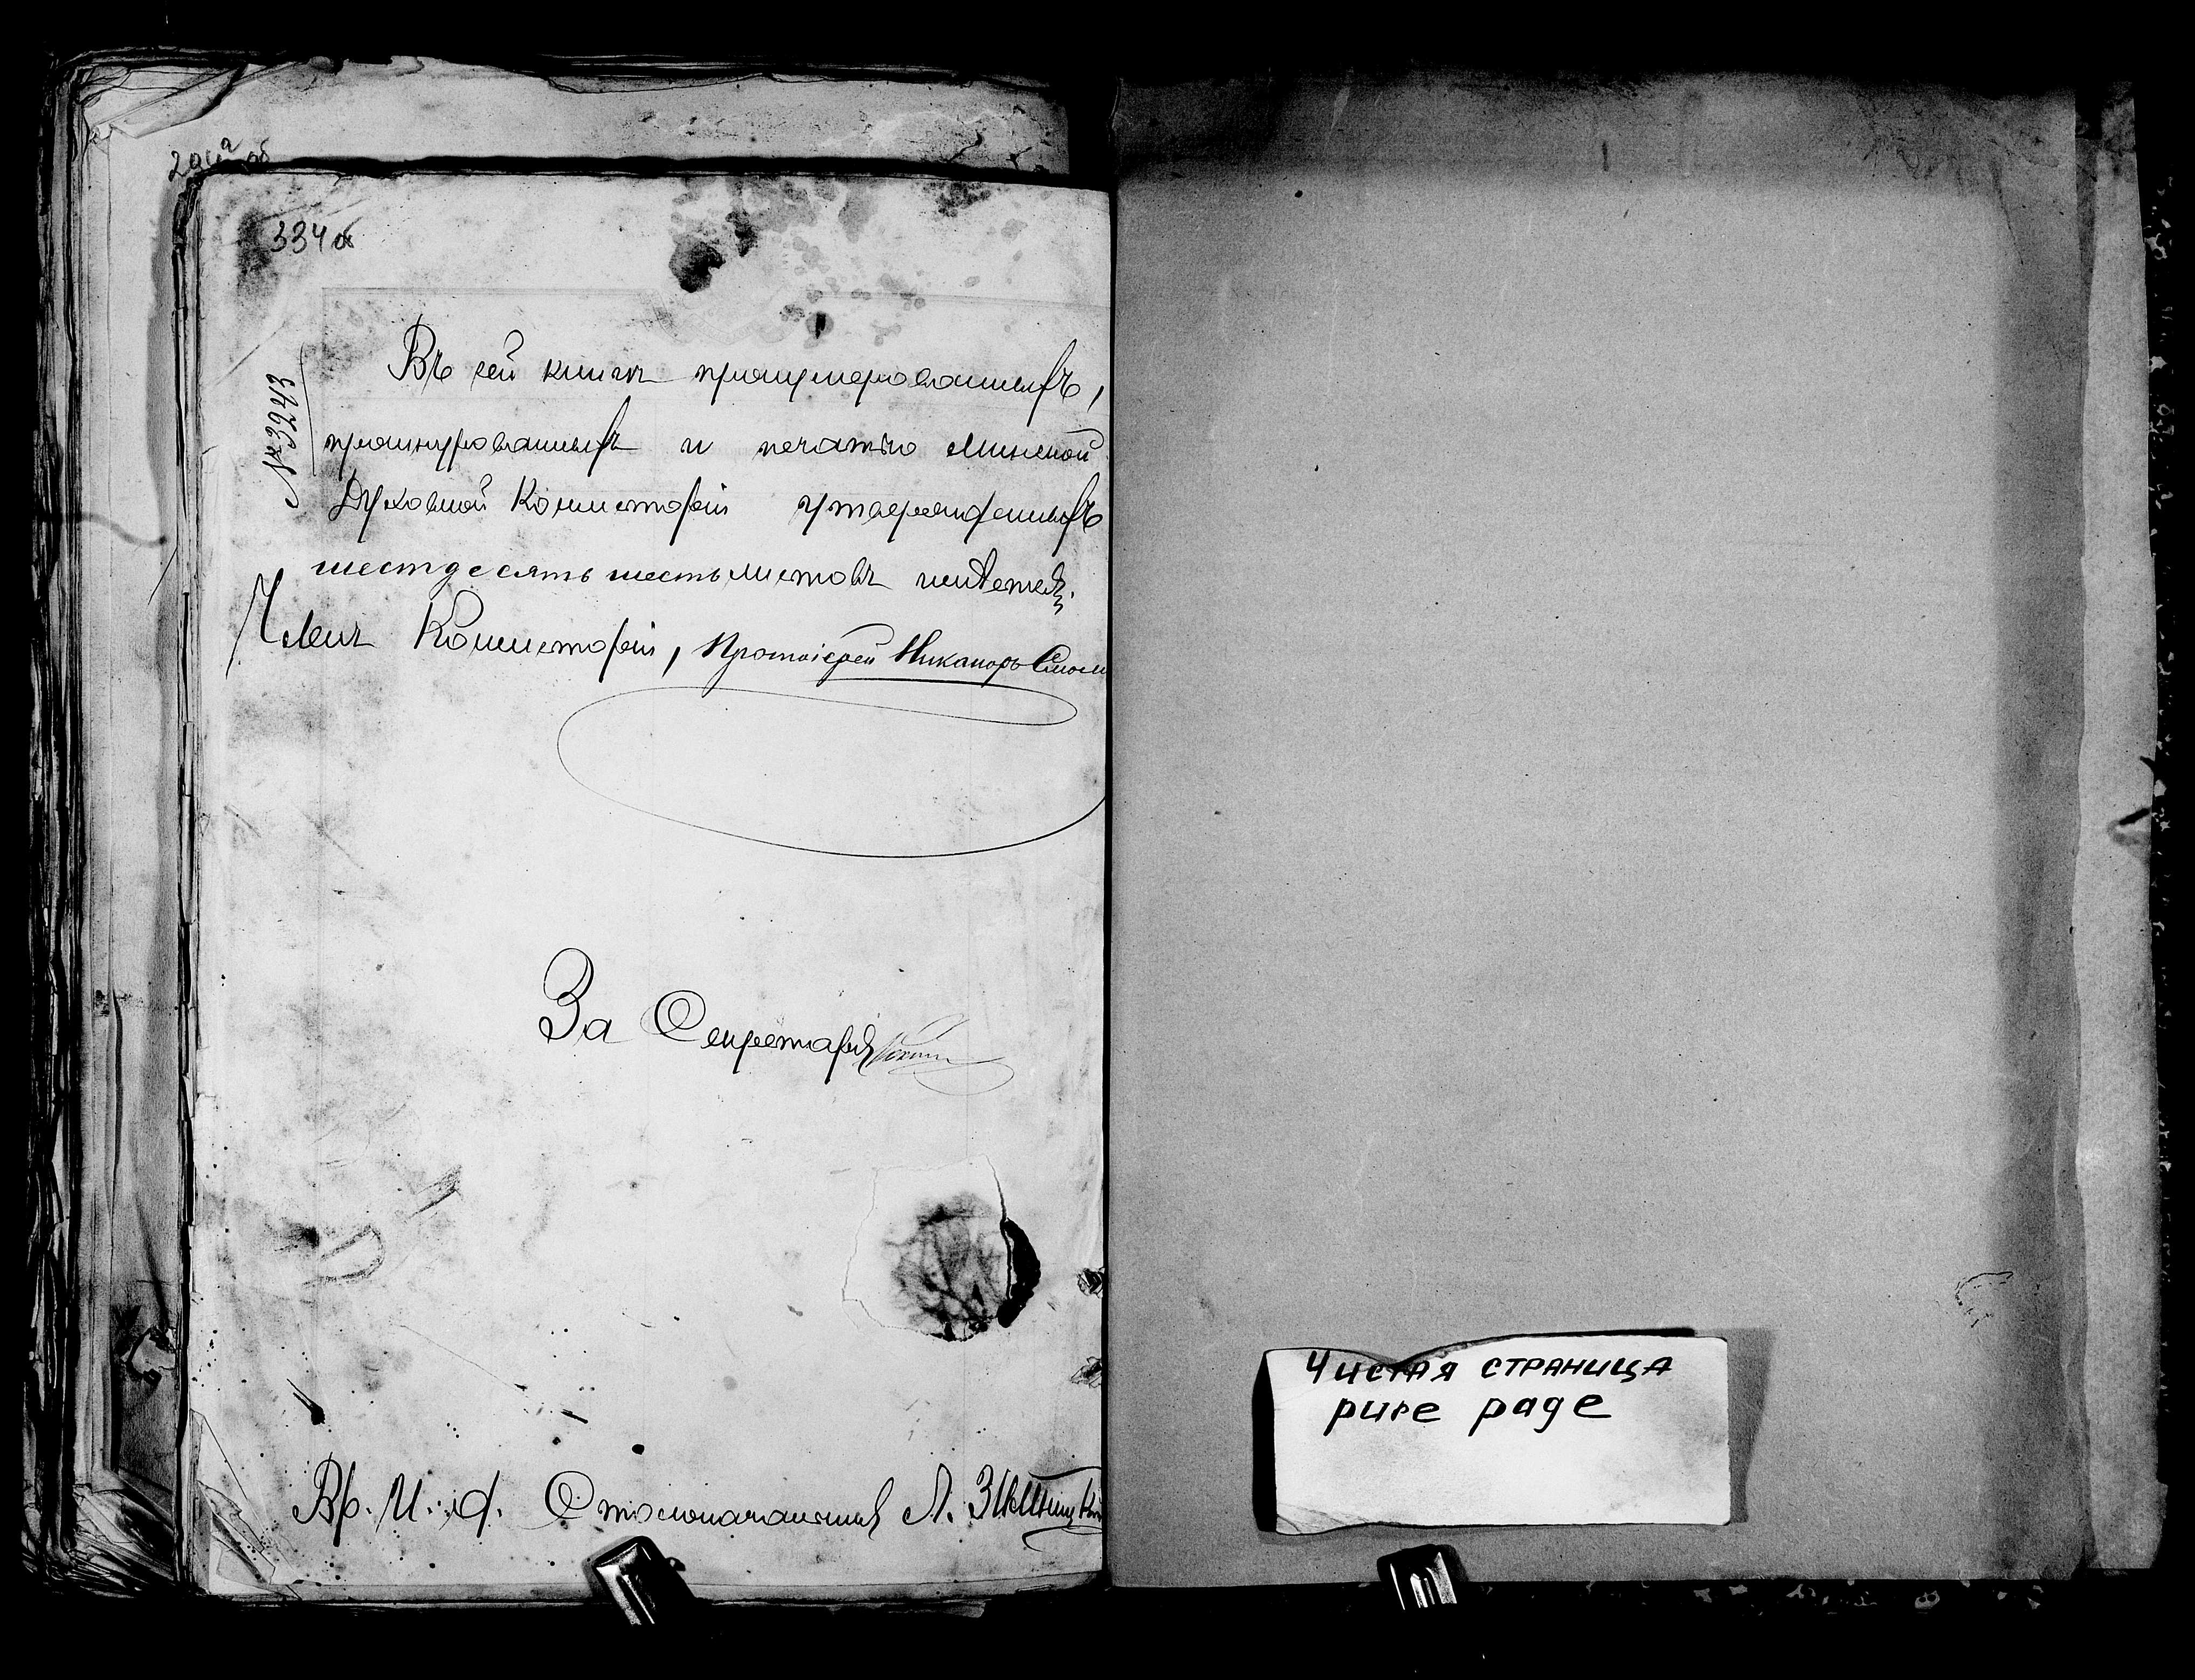 334 об
№ 3243
Въ сей книгѣ пронумерованныхъ,
прошнурованныхъ и печатью Минской
Духовной Консисторіи утвержденныхъ
шестдесятъ шесть листовъ имѣется.
Членъ Консисторіи, Протоіерей Никаноръ Смол
За Секретаря
Вр. И. д. Столоначальника Л.
Чистая страница
pure page